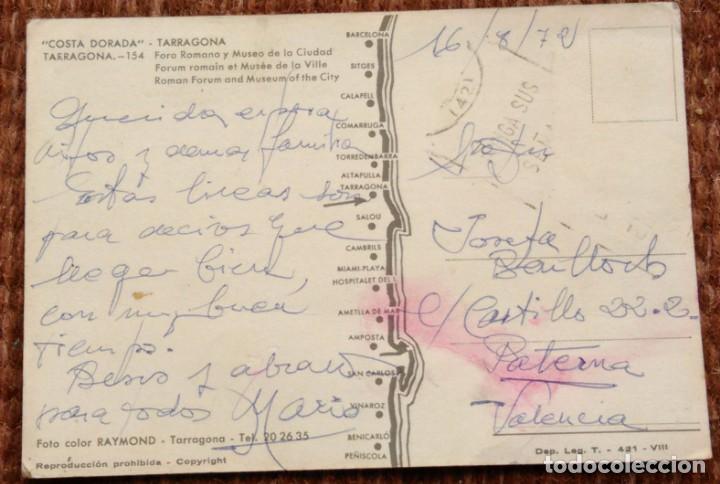 "COSTA DORADA" - TARRAGONA
TARRAGONA.-154 Foro Romano y Museo de la Ciudad
Forum romain et Musée de la Ville
Roman Forum and Museum of the City
Querida
y demas familia
Estas lineas son
para deciros que
llegar bien,
con muy buen
tiempo.
Besos y abrazos
para todos Mario
Foto color RAYMOND - Tarragona - Tel. 20 26 35
Reproducción prohibida - Copyright
BARCELONA
SITGES
CALAFELL
COMARRUGA
TORREDEMBARRA
ALTAFULLA
TARRAGONA
SALOU
CAMBRILS
MIAMI-PLAYA
HOSPITALET DEL I.
AMETLLA DE MAR
AMPOSTA
SAN CARLOS
VINAROZ
BENICARLÓ
PEÑISCOLA
16/8/72
(421)
IGA SUS
Josefa
Benlloch
c/ Castillo 22-2-
Paterna
Valencia
Dep. Leg. T. - 421 - VIII
todocoleccion.net